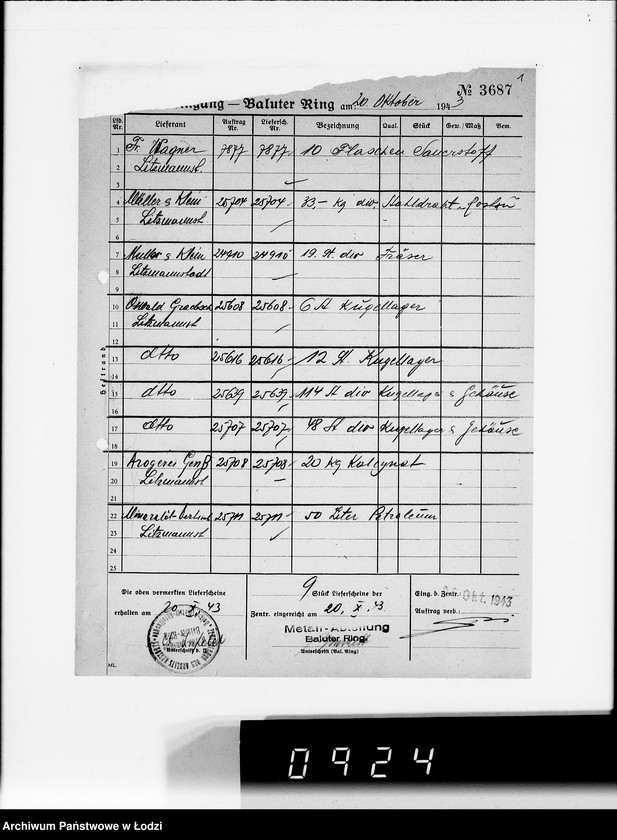 1
№ 3687
ngang — Baluter Ring am 20. Oktober 1943
Lfd. Nr. Lieferant Auftrag Nr. Liefersch. Nr. Bezeichnung Qual. Stück Gew./Maß Bem.
1 Fr. Wagner 7877 7877 10 Flaschen Sauerstoff
2 Litzmannst.
3
4 Müller & Klein 25704 25704 33.- kg div. Stahldraht
5 Litzmannst
6
7 Müller & Klein 24910 24910 19 St. div Fräser
8 Litzmannstadt
9
10 Oswald 25608 25608 6 St Kugellager
11 Litzmannst
12
13 dtto 25616 25616 12 St. Kugellager
14
15 dtto 25639 25639 114 St div Kugellager & Gehäuse
16
17 dtto 25707 25707 48 St div Kugellager & Gehäuse
18
19 25708 25708 20 kg
20 Litzmannst
21
22 25711 25711 50 Liter Petroleum
23 Litzmannst
24
25
Heftrand
Die oben vermerkten Lieferscheine
erhalten am 20. X. 43
Unterschrift d.
9 Stück Lieferscheine der
Zentr. eingereicht am 20. X. 43
Metall-Abteilung
Baluter Ring.
Unterschrift (Bal. Ring)
Eing. b. Zentr.: Okt. 1943
Auftrag verb.:
ML.
0924
Archiwum Państwowe w Łodzi